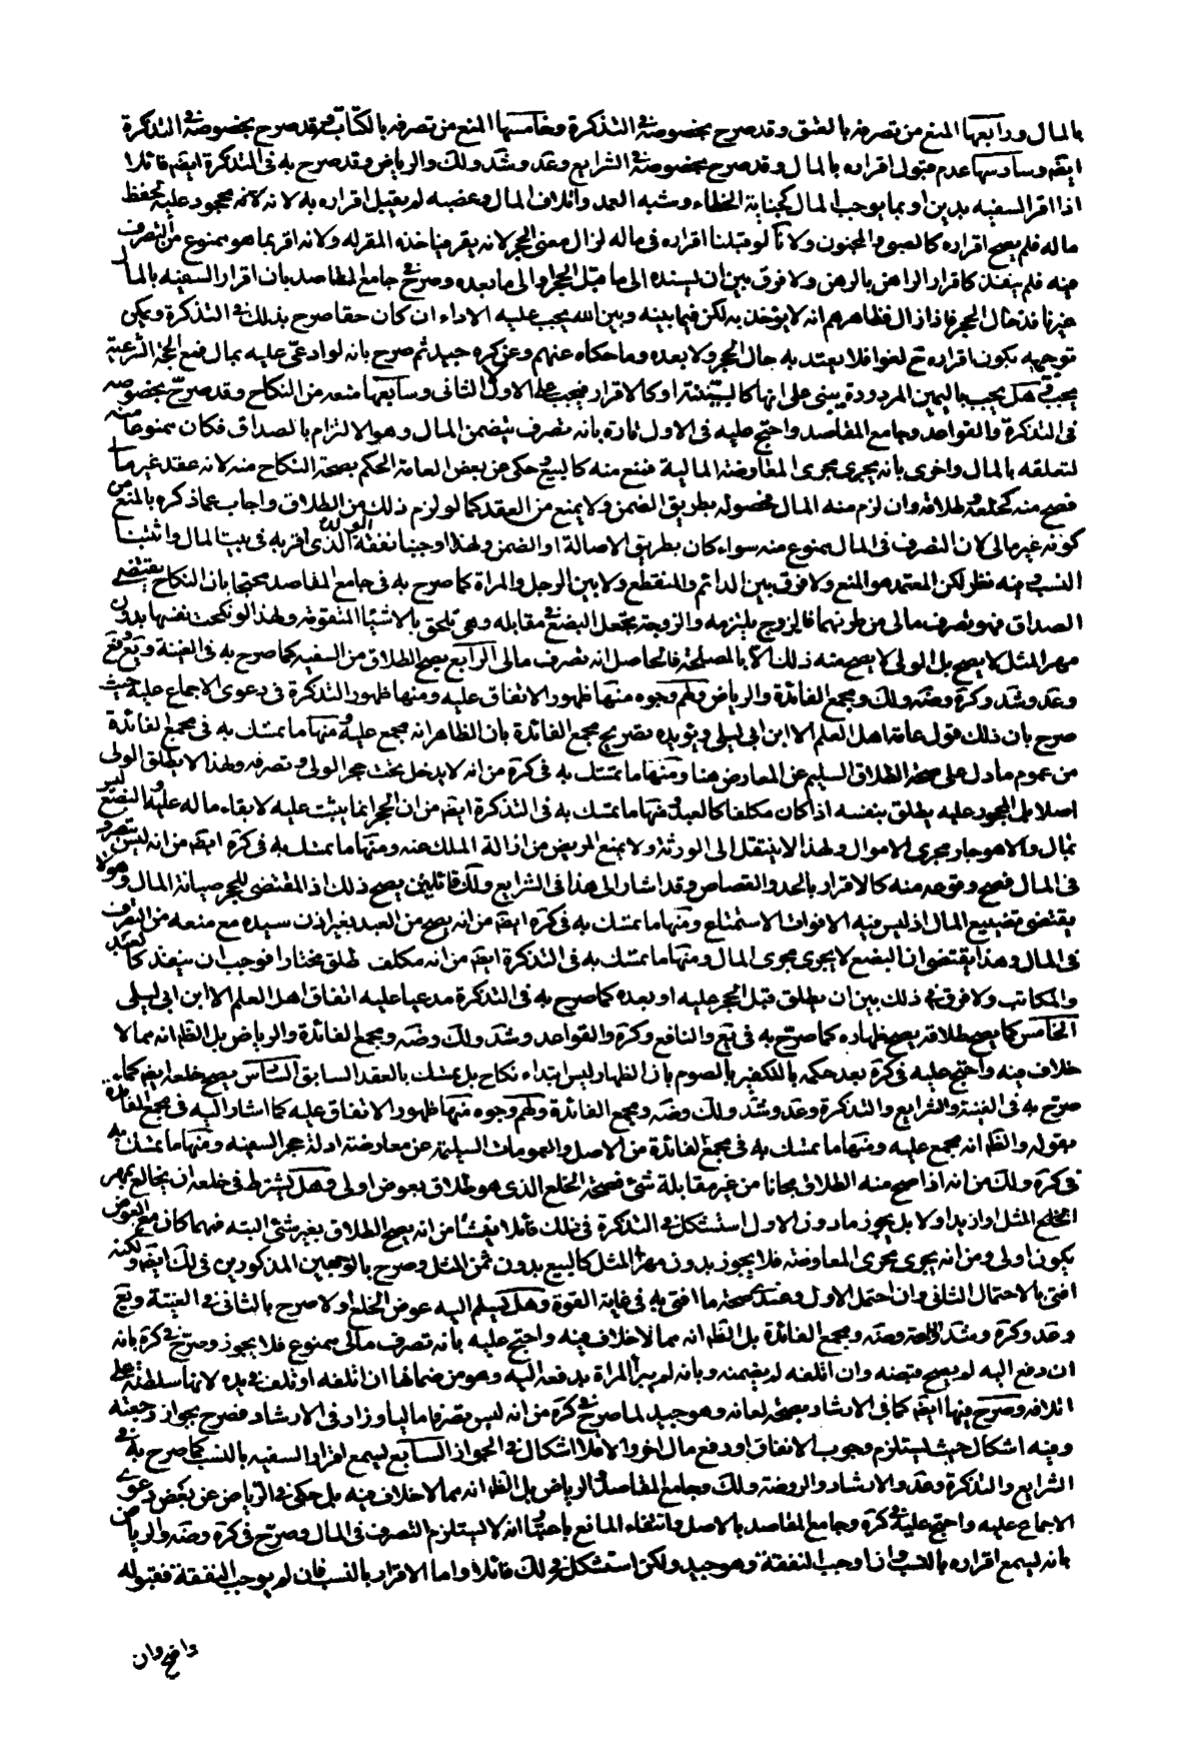 بالمال ورابعها المنع من تصرفه بالعتق وقد صرح بخصوصه في التذكرة وخامسها المنع من تصرفه بالكتابة وقد صرح بخصوصه في التذكرة
ايضا وسادسها عدم قبول اقراره بالمال وقد صرح بخصوصه في الشرايع وعد وشد ولك والرياض وقد صرح به في التذكرة ايضا قائلا
اذا اقر السفيه بدين او بما يوجب المال كجناية الخطاء وشبه العمد واتلاف المال وغصبه لم يقبل اقراره به لانه محجور عليه لحفظ
ماله فلم يصح اقراره كالصبي والمجنون ولانا لو قبلنا اقراره في ماله لزال معنى الحجر لانه يقر فياخذه المقر له ولانه اقر بما هو ممنوع من التصرف
فيه فلم ينفذ كاقرار الراهن بالرهن ولا فرق بين ان يسنده الى ما قبل الحجر او الى ما بعده وصرح في جامع المقاصد بان اقرار السفيه بالمال
غير نافذ حال الحجر فاذا زال فظاهرهم انه لا يؤخذ به لكن فيما بينه وبين الله يجب عليه الاداء ان كان حقا صرح بذلك في التذكرة ويمكن
توجيهه بكون اقراره ح لغوا فلا يعتد به حال الحجر ولا بعده وما حكاه عنهم وعن كره جيد ثم صرح بانه لو ادعى عليه بمال فمع الحجة الشرعية
يجب وهل يجب باليمين المردودة يبنى على انها كالبينة او كالاقرار فيجب على الاول لا الثاني وسابعها منعه من النكاح وقد صرح بخصوصه
في التذكرة والقواعد وجامع المقاصد واحتج عليه في الاول تارة بانه تصرف يتضمن المال وهو الالتزام بالصداق فكان ممنوعا منه
لتعلقه بالمال واخرى بانه يجري مجرى المعاوضة المالية فمنع منه كالبيع وحكى عن بعض العامة الحكم بصحة النكاح منه لانه عقد غير مالي
فصح منه كخلعه وطلاقه وان لزم منه المال فحصوله بطريق الضمن ولا يمنع من العقد كما لو لزم ذلك من الطلاق واجاب عما ذكره بالمنع من
كونه غير مالي لان التصرف في المال ممنوع منه سواء كان بطريق الاصالة او الضمن ولهذا اوجبنا نفقة الولد الذي اقر به في بيت المال واثبتنا
النسب وفيه نظر لكن المعتمد هو المنع ولا فرق بين الدائم والمنقطع ولا بين الرجل والمراة كما صرح به في جامع المقاصد محتجا بان النكاح يقتضي
الصداق فهو تصرف مالي من طرفيهما فالزوج يلتزمه والزوجة تجعل البضع في مقابله وهي تلحق بالاشياء المتقومة ولهذا لو نكحت نفسها بدون
مهر المثل لا يصح بل الولي لا يصح منه ذلك الا بالمصلحة فالحاصل انه تصرف مالي الرابع يصح الطلاق من السفيه كما صرح به في الغنية ويع وفع
وعد وشد وكرة وضه ولك ومجمع الفائدة والرياض ولهم وجوه منها ظهور الاتفاق عليه ومنها ظهور التذكرة في دعوى الاجماع عليه حيث
صرح بان ذلك قول عامة اهل العلم الا ابن ابي ليلى ويؤيده تصريح مجمع الفائدة بان الظاهر انه مجمع عليه ومنها ما تمسك به في مجمع الفائدة
من عموم ما دل على صحة الطلاق السليم عن المعارض هنا ومنها ما تمسك به في كرة من انه لا يدخل تحت حجر الولي وتصرفه ولهذا لا يطلق الولي
اصلا بل المحجور عليه يطلق بنفسه اذا كان مكلفا كالعبد ومنها ما تمسك به في التذكرة ايضا من ان الحجر انما يثبت عليه لابقاء ماله عليه والبضع ليس
بمال ولا هو جار مجرى الاموال ولهذا لا ينتقل الى الورثة ولا يمنع المريض من ازالة الملك عنه ومنها ما تمسك به في كرة ايضا من انه ليس بتصرف
في المال فصح وقوعه منه كالاقرار بالحد والقصاص وقد اشار الى هذا في الشرايع ولك قائلين يصح ذلك اذ المقتضي للحجر صيانة المال وهو لا
يقتضي تضييع المال اذ ليس فيه الا فوات الاستمتاع ومنها ما تمسك به في كرة ايضا من انه يصح من العبد بغير اذن سيده مع منعه من التصرف
في المال وهذا يقتضي ان البضع لا يجري مجرى المال ومنها ما تمسك به في التذكرة ايضا من انه مكلف طلق مختارا فوجب ان ينفذ كالعبد
والمكاتب ولا فرق في ذلك بين ان يطلق قبل الحجر عليه او بعده كما صرح به في التذكرة مدعيا عليه اتفاق اهل العلم الا ابن ابي ليلى
الخامس كما يصح طلاقه يصح ظهاره كما صرح به في يع والنافع وكرة والقواعد وشد ولك وضه ومجمع الفائدة والرياض بل الظ انه مما لا
خلاف فيه واحتج عليه في كرة بعد حكمه بالتكفير بالصوم بان الظهار ليس ابتداء نكاح بل تمسك بالعقد السابق السادس يصح خلعه ايضا كما
صرح به في الغنية والشرايع والتذكرة وعد وشد ولك وضه ومجمع الفائدة ولهم وجوه منها ظهور الاتفاق عليه كما اشار اليه في مجمع الفائدة
بقوله والظ انه مجمع عليه ومنها ما تمسك به في مجمع الفائدة من الاصل والعمومات السليمة عن معارضة ادلة حجر السفيه ومنها ما تمسك به
في كرة ولك من انه اذا صح منه الطلاق مجانا من غير مقابلة شئ فصحة الخلع الذي هو طلاق بعوض اولى وهل يشترط في خلعه ان يخالع بمهر
المثل او ازيد او لا بل يجوز ما دون الاول استشكل في التذكرة في ذلك قائلا ينشأ من انه يصح الطلاق بغير شئ البتة فمهما كان مع العوض
يكون اولى ومن انه يجري مجرى المعاوضة فلا يجوز بدون مهر المثل كالبيع بدون ثمن المثل وصرح بالوجهين المذكورين في لك ايضا ولكنه
افتى بالاحتمال الثاني وان احتمل الاول وعندي صحة ما افتى به في غاية القوة وهل يسلم اليه عوض الخلع او لا صرح بالثاني في الغنية ويع
وعد وكرة وشد وضه ومجمع الفائدة بل الظ انه مما لا خلاف فيه واحتج عليه بانه تصرف مالي ممنوع فلا يجوز وصرح في كرة بانه
ان دفع اليه لم يصح قبضه وان اتلفه لم يضمنه وبانه لم تبرأ المراة بدفعه اليه وهو من ضمانها ان اتلفه او تلف في يده لانها سلطته على
اتلافه وصرح فيها ايضا كما في الارشاد بصحة لعانه وهو جيد لما صرح في كرة من انه ليس تصرفا ماليا وزاد في الارشاد فصرح بجواز رجعته
وفيه اشكال حيث يستلزم وجوب الانفاق او دفع مال اخر والا فلا اشكال في الجواز السابع يسمع اقرار السفيه بالنسب كما صرح به في
الشرايع والتذكرة وعد والارشاد والروضة ولك وجامع المقاصد والرياض بل الظ انه مما لا خلاف فيه بل حكى في الرياض عن بعض دعوى
الاجماع عليه واحتج عليه في كرة وجامع المقاصد بالاصل وانتفاء المانع باعتبار انه لا يستلزم التصرف في المال وصرح في كرة وضه والرياض
بانه يسمع اقراره بالنسب وان اوجب النفقة وهو جيد ولكن استشكل في لك قائلا واما الاقرار بالنسب فان لم يوجب النفقة فقبوله
واضح وان